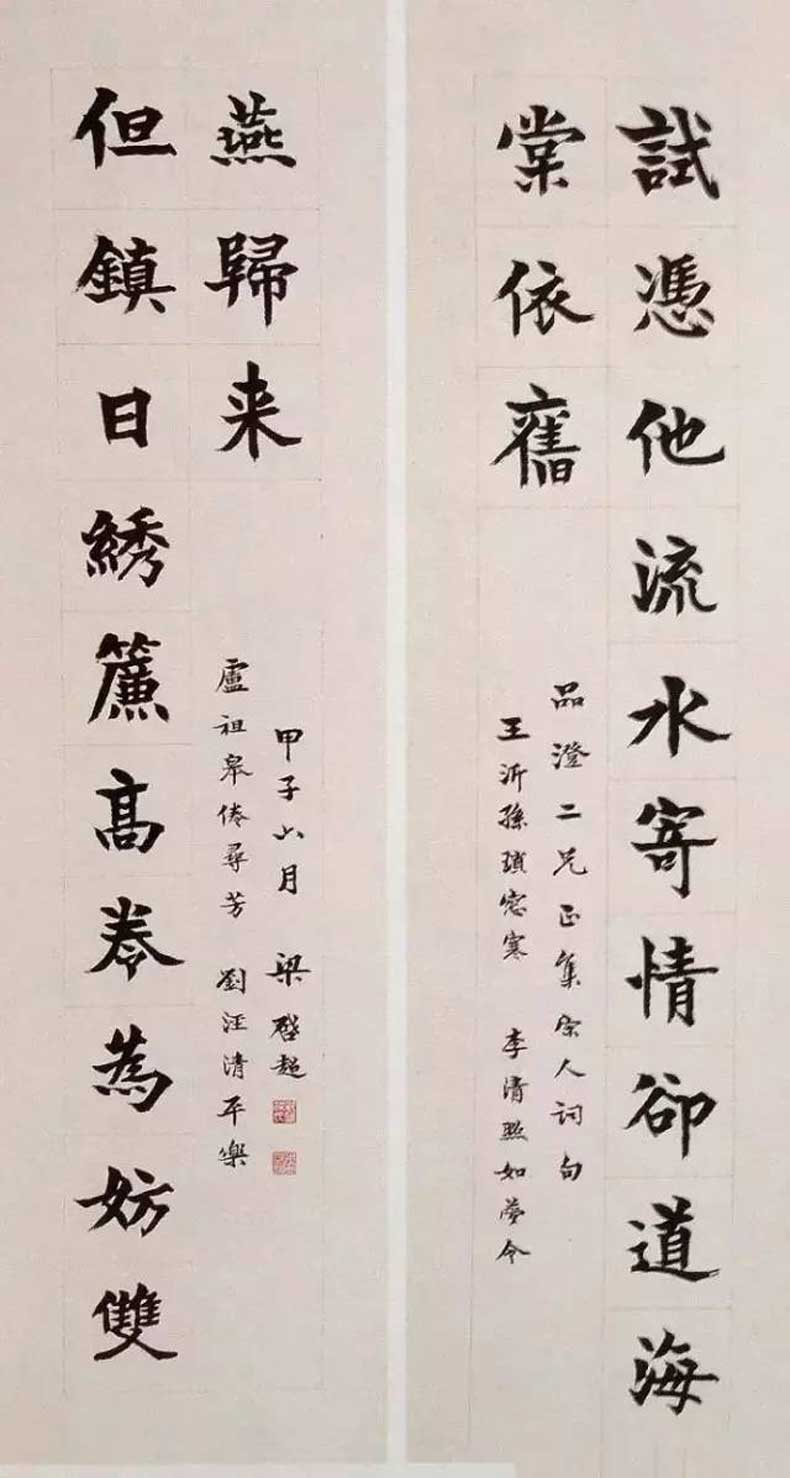 試憑他流水寄情卻道海
棠依舊
品澄二兄正集宋人詞句
王沂孫瑣窓寒 李清照如夢令
但鎮日綉簾髙卷為妨雙
燕歸来
盧祖皋倦尋芳 劉汪清平樂
甲子六月 梁啓超